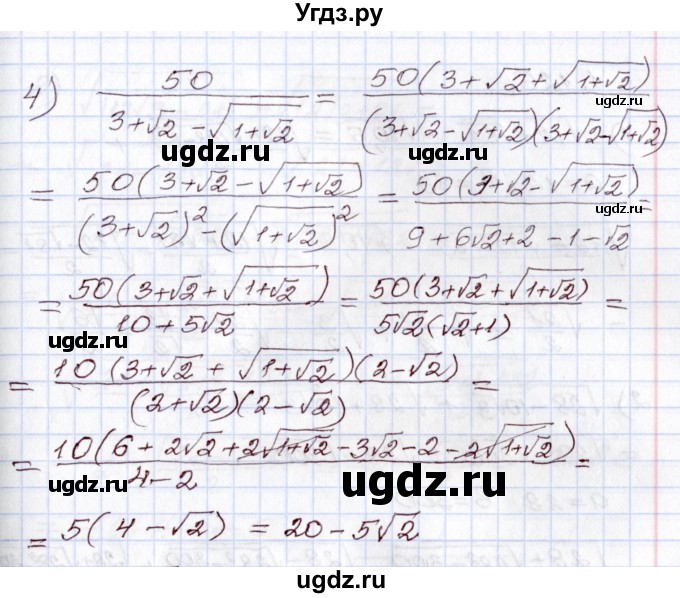 Угдз.ру
4) 50 / (3+√2 - √(1+√2)) = 50(3+√2+√(1+√2)) / (3+√2-√(1+√2))(3+√2-√(1+√2))
ugdz.ru
ugdz.ru
= 50(3+√2-√(1+√2)) / ((3+√2)² - (√(1+√2))²) = 50(3+√2-√(1+√2)) / (9+6√2+2-1-√2) =
ugdz.ru
ugdz.ru
= 50(3+√2+√(1+√2)) / (10+5√2) = 50(3+√2+√(1+√2)) / (5√2(√2+1)) =
ugdz.ru
ugdz.ru
= 10(3+√2+√(1+√2))(2-√2) / ((2+√2)(2-√2)) =
ugdz.ru
= 10(6+2√2+2√(1+√2)-3√2-2-2√(1+√2)) / (4-2) =
ugdz.ru
ugdz.ru
= 5(4-√2) = 20-5√2
ugdz.ru
ugdz.ru